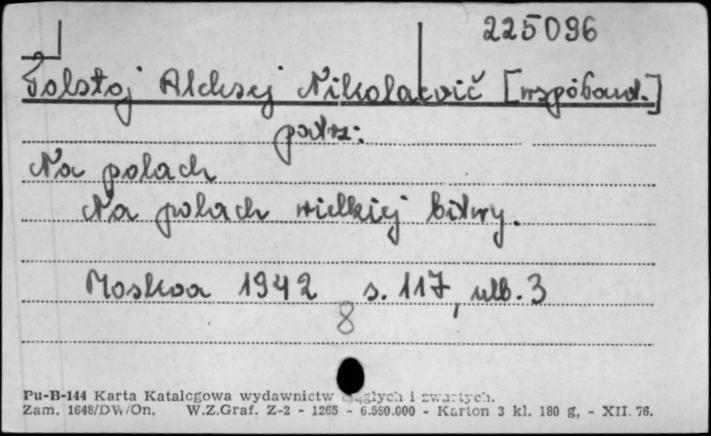 225096
Tolstoj Aleksej Nikolaevič [współaut.]
patrz:
Na polach
Na polach wielkiej bitwy.
Moskva 1942 s. 117, nlb. 3
8
Pu-B-144 Karta Katalogowa wydawnictw ciągłych i zwartych.
Zam. 1648/DW/On. W.Z.Graf. Z-2 - 1265 - 6.590.000 - Karton 3 kl. 180 g, - XII. 76.